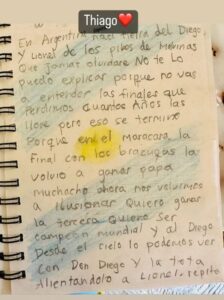 Thiago❤️
En Argentina naci tierra del Diego
y Lionel de los pibes de Malvinas
Que Jamas olvidare No te lo
puedo explicar porque no vas
a entender las finales que
Perdimos cuantos Años las
llore pero eso se termino
Porque en el maracana la
final con los brazucas la
volvio a ganar papa
muchacho ahora nos volvimos
a ilusionar Quiero ganar
la tercera Quiero ser
campeon mundial y al Diego
Desde el cielo lo podemos ver
con Don Diego y la tota
Alientandolo a Lionel repito